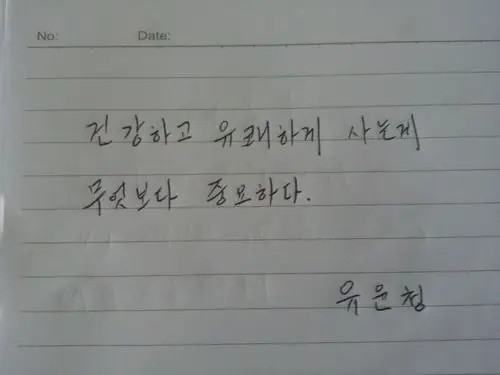 No: Date:
건강하고 유쾌하게 사는게
무엇보다 중요하다.
유윤청